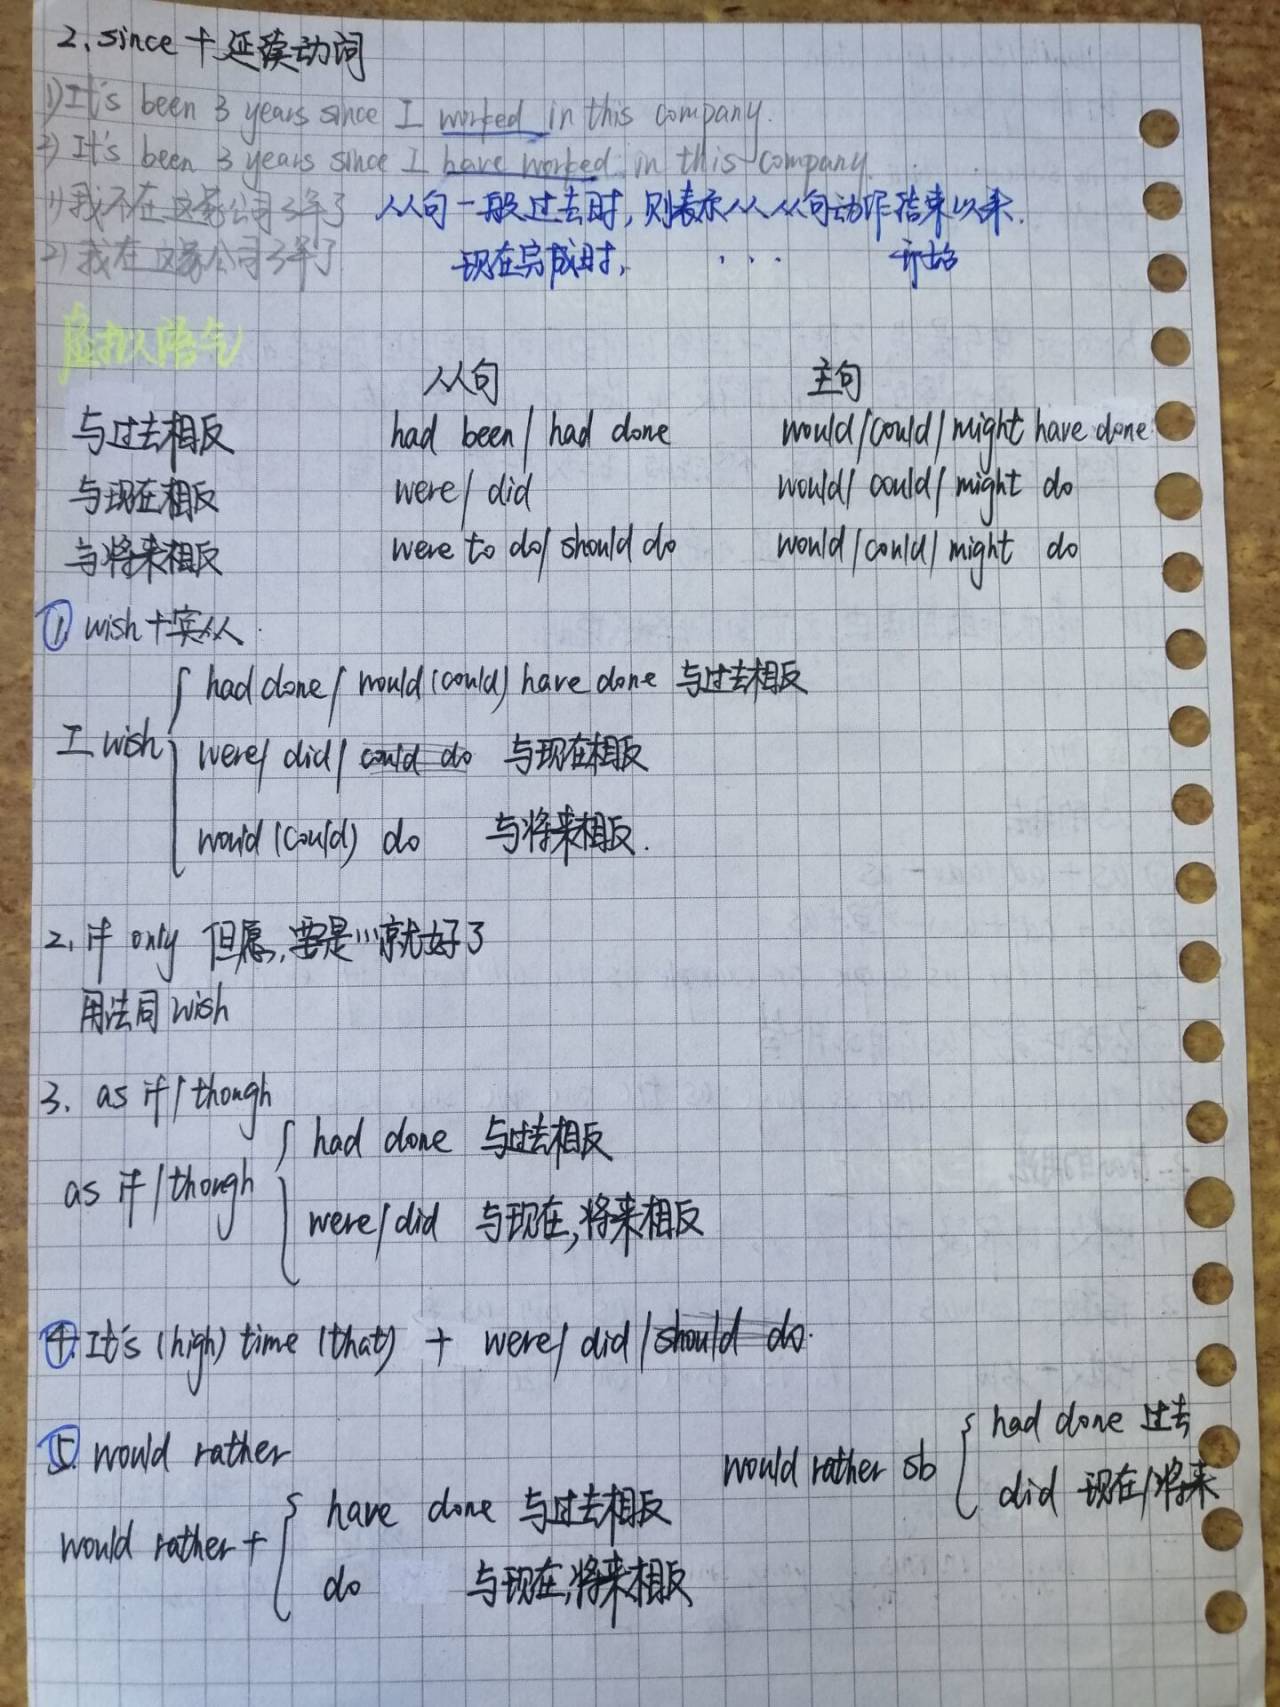 2、since + 延续动词
1) It's been 3 years since I worked in this company.
2) It's been 3 years since I have worked in this company.
1) 我不在这家公司3年了 从句一般过去时，则表示从从句动作结束以来.
2) 我在这家公司3年了 现在完成时， ... 开始
虚拟语气
从句 主句
与过去相反 had been/ had done would/could/might have done
与现在相反 were/ did would/ could/ might do
与将来相反 were to do/ should do would/could/ might do
① wish+宾从
had done/ would(could) have done 与过去相反
I wish were/ did/ could do 与现在相反
would (could) do 与将来相反.
2, if only 但愿，要是...就好了
用法同 wish
3. as if/though
had done 与过去相反
as if/though
were/did 与现在,将来相反
④ It's (high) time (that) + were/ did/should do.
had done 过去
⑤. would rather would rather sb
did 现在/将来
have done 与过去相反
would rather +
do 与现在,将来相反